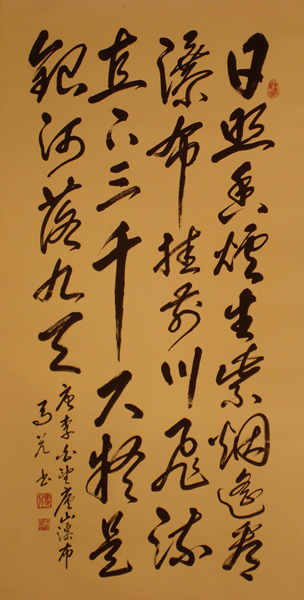 日照香爐生紫烟遙看
瀑布挂前川飛流
直下三千尺疑是
銀河落九天
唐李白望廬山瀑布
馬 書